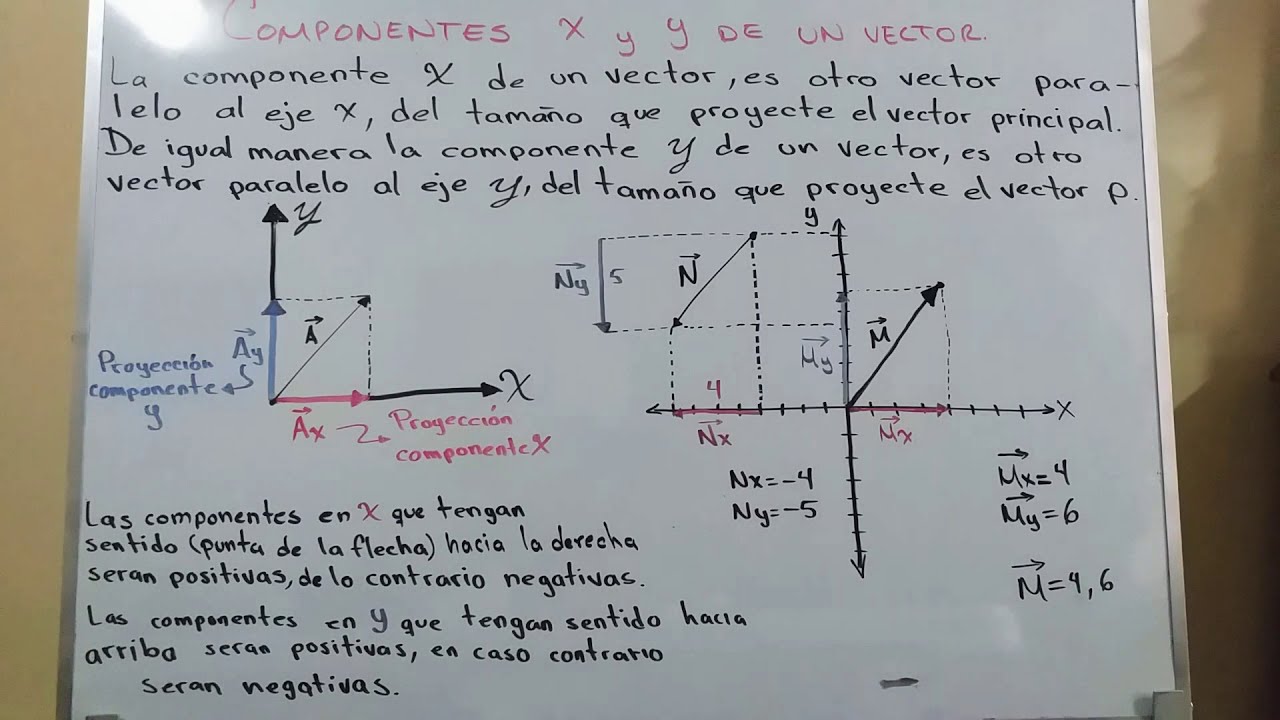 COMPONENTES X y Y DE UN VECTOR.
La componente X de un vector, es otro vector para-
lelo al eje X, del tamaño que proyecte el vector principal.
De igual manera la componente Y de un vector, es otro
vector paralelo al eje Y, del tamaño que proyecte el vector P.
Y
A
Ay
Proyección
componente
y
X
Ax
Proyección
componente X
y
Ny
5
N
M
My
4
X
Nx
Mx
Nx=-4
Ny=-5
Mx=4
My=6
M=4,6
Las componentes en X que tengan
sentido (punta de la flecha) hacia la derecha
seran positivas, de lo contrario negativas.
Las componentes en Y que tengan sentido hacia
arriba seran positivas, en caso contrario
seran negativas.